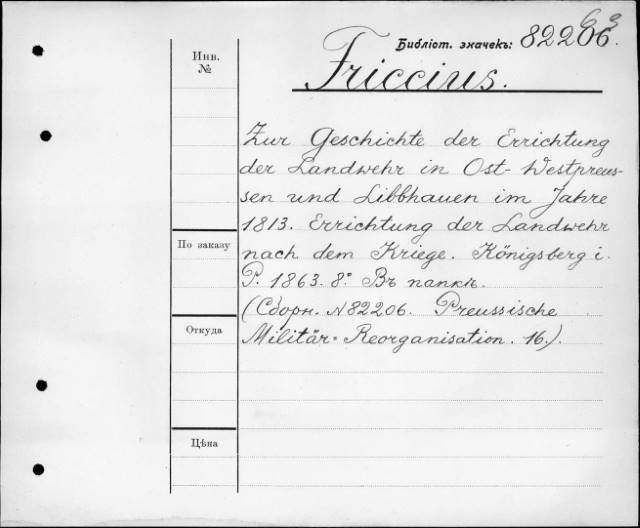 Библіот. значекъ: 82206.
Инв.
№
Friccius.
Zur Geschichte der Errichtung
der Landwehr in Ost- Westpreus-
sen und Libbhauen im Jahre
1813. Errichtung der Landwehr
nach dem Kriege. Königsberg i.
P. 1863. 8° Въ папкѣ.
(Сборн. N 82206. Preussische
Militär-Reorganisation. 16.)
По заказу
Откуда
Цѣна